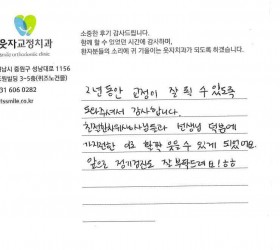 웃자교정치과
orthodontic clinic
성남시 중원구 성남대로 1156
3-5층(위즈노건물)
31 606 0282
tssmile.co.kr
소중한 후기 감사드립니다.
함께 할 수 있었던 시간에 감사하며,
환자분들의 소리에 귀 기울이는 웃자치과가 되도록 하겠습니다.
2년 동안 교정이 잘 될 수 있도록
도와주셔서 감사합니다.
친절한 치위생사님들과 선생님 덕분에
가지런한 이로 활짝 웃을 수 있게 되었어요.
앞으로 정기검진도 잘 부탁드려요!ㅎㅎ